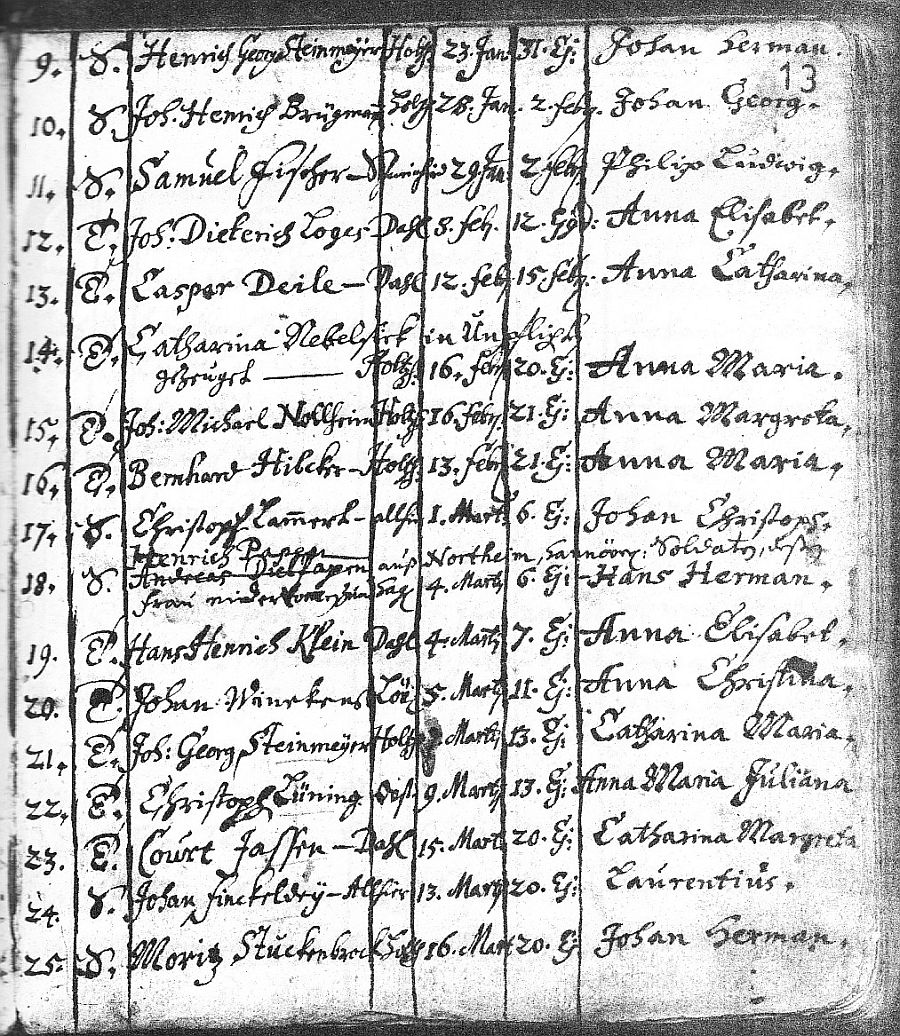 9. S. Henrich Georg Steinmeyer Holtz. 23. Jan. 31. Ej: Johan Herman.
13
10. S. Joh. Henrich Brügman Holtz 28. Jan. 2. feb. Johan Georg.
11. S. Samuel Fischer - 29. Jan. 2. feb. Philip Ludwig.
12. T. Joh: Dieterich Loges Dahl 8. feb. 12. Anna Elisabet.
13. T. Caspar Deile - Dahl 12. feb. 15. feb. Anna Catharina,
14. T. Catharina Nebelsiek in Unpflicht
gezeuget — Holtz. 16. feb. 20. Ej: Anna Maria.
15. T. Joh: Michael Nollheim Holtz 16. feb. 21. Ej: Anna Margreta,
16. T. Bernhard Hilcker - Holtz 13. feb. 21. Ej: Anna Maria.
17. S. Christoph Lam̄ert - 1. Mart. 6. Ej: Johan Christoph.
Henrich aus Northeim, Soldaten,
18. S. Andreas 4. Mart. 6. Ej: Hans Herman.
frau
19. T. Hans Henrich Klein Dahl 4. Mart. 7. Ej: Anna Elisabet.
20. T. Johan Winekens 5. Mart. 11. Ej: Anna Christina.
21. T. Joh: Georg Steinmeyer Holtz Mart. 13. Ej: Catharina Maria.
22. T. Christoph Lüning 9. Mart. 13. Ej: Anna Maria Juliana
23. T. Court Jassen - Dahl 15. Mart. 20. Ej: Catharina Margreta
24. S. Johan finckeldey - 13. Mart 20. Ej: Laurentius.
25. S. Moritz Stuckenbrock Holtz 16. Mart 20. Ej: Johan Herman.